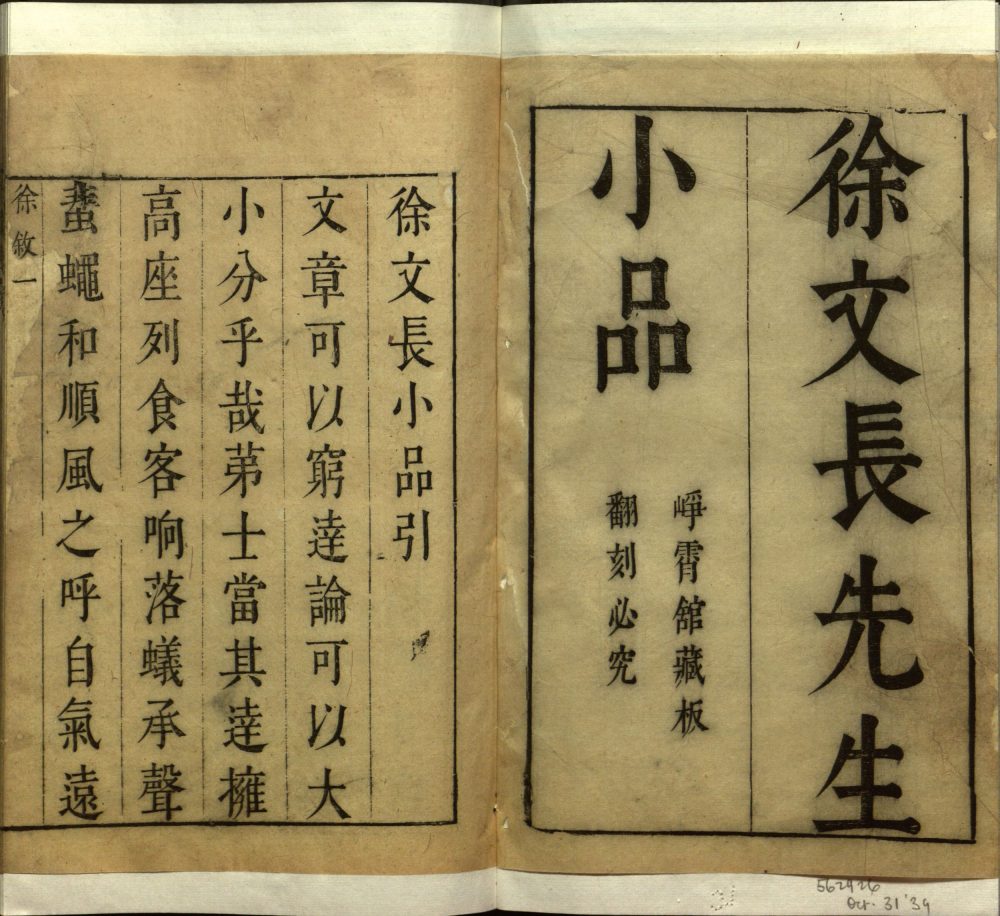 徐文長先生
小品
崢霄舘藏板
翻刻必究
徐文長小品引
文章可以窮逹論可以大
小分乎哉苐士當其逹擁
高座列食客响落蟻承聲
蜚蠅和順風之呼自氣遠
徐敘一
562926
Oct. 31 '39